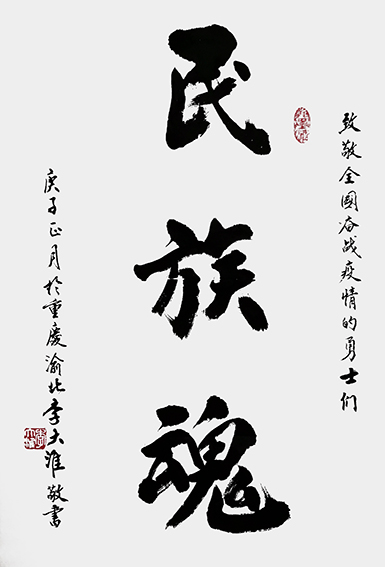 致敬全國奋战疫情的勇士们
民族魂
庚子正月於重慶渝北李大淮敬書